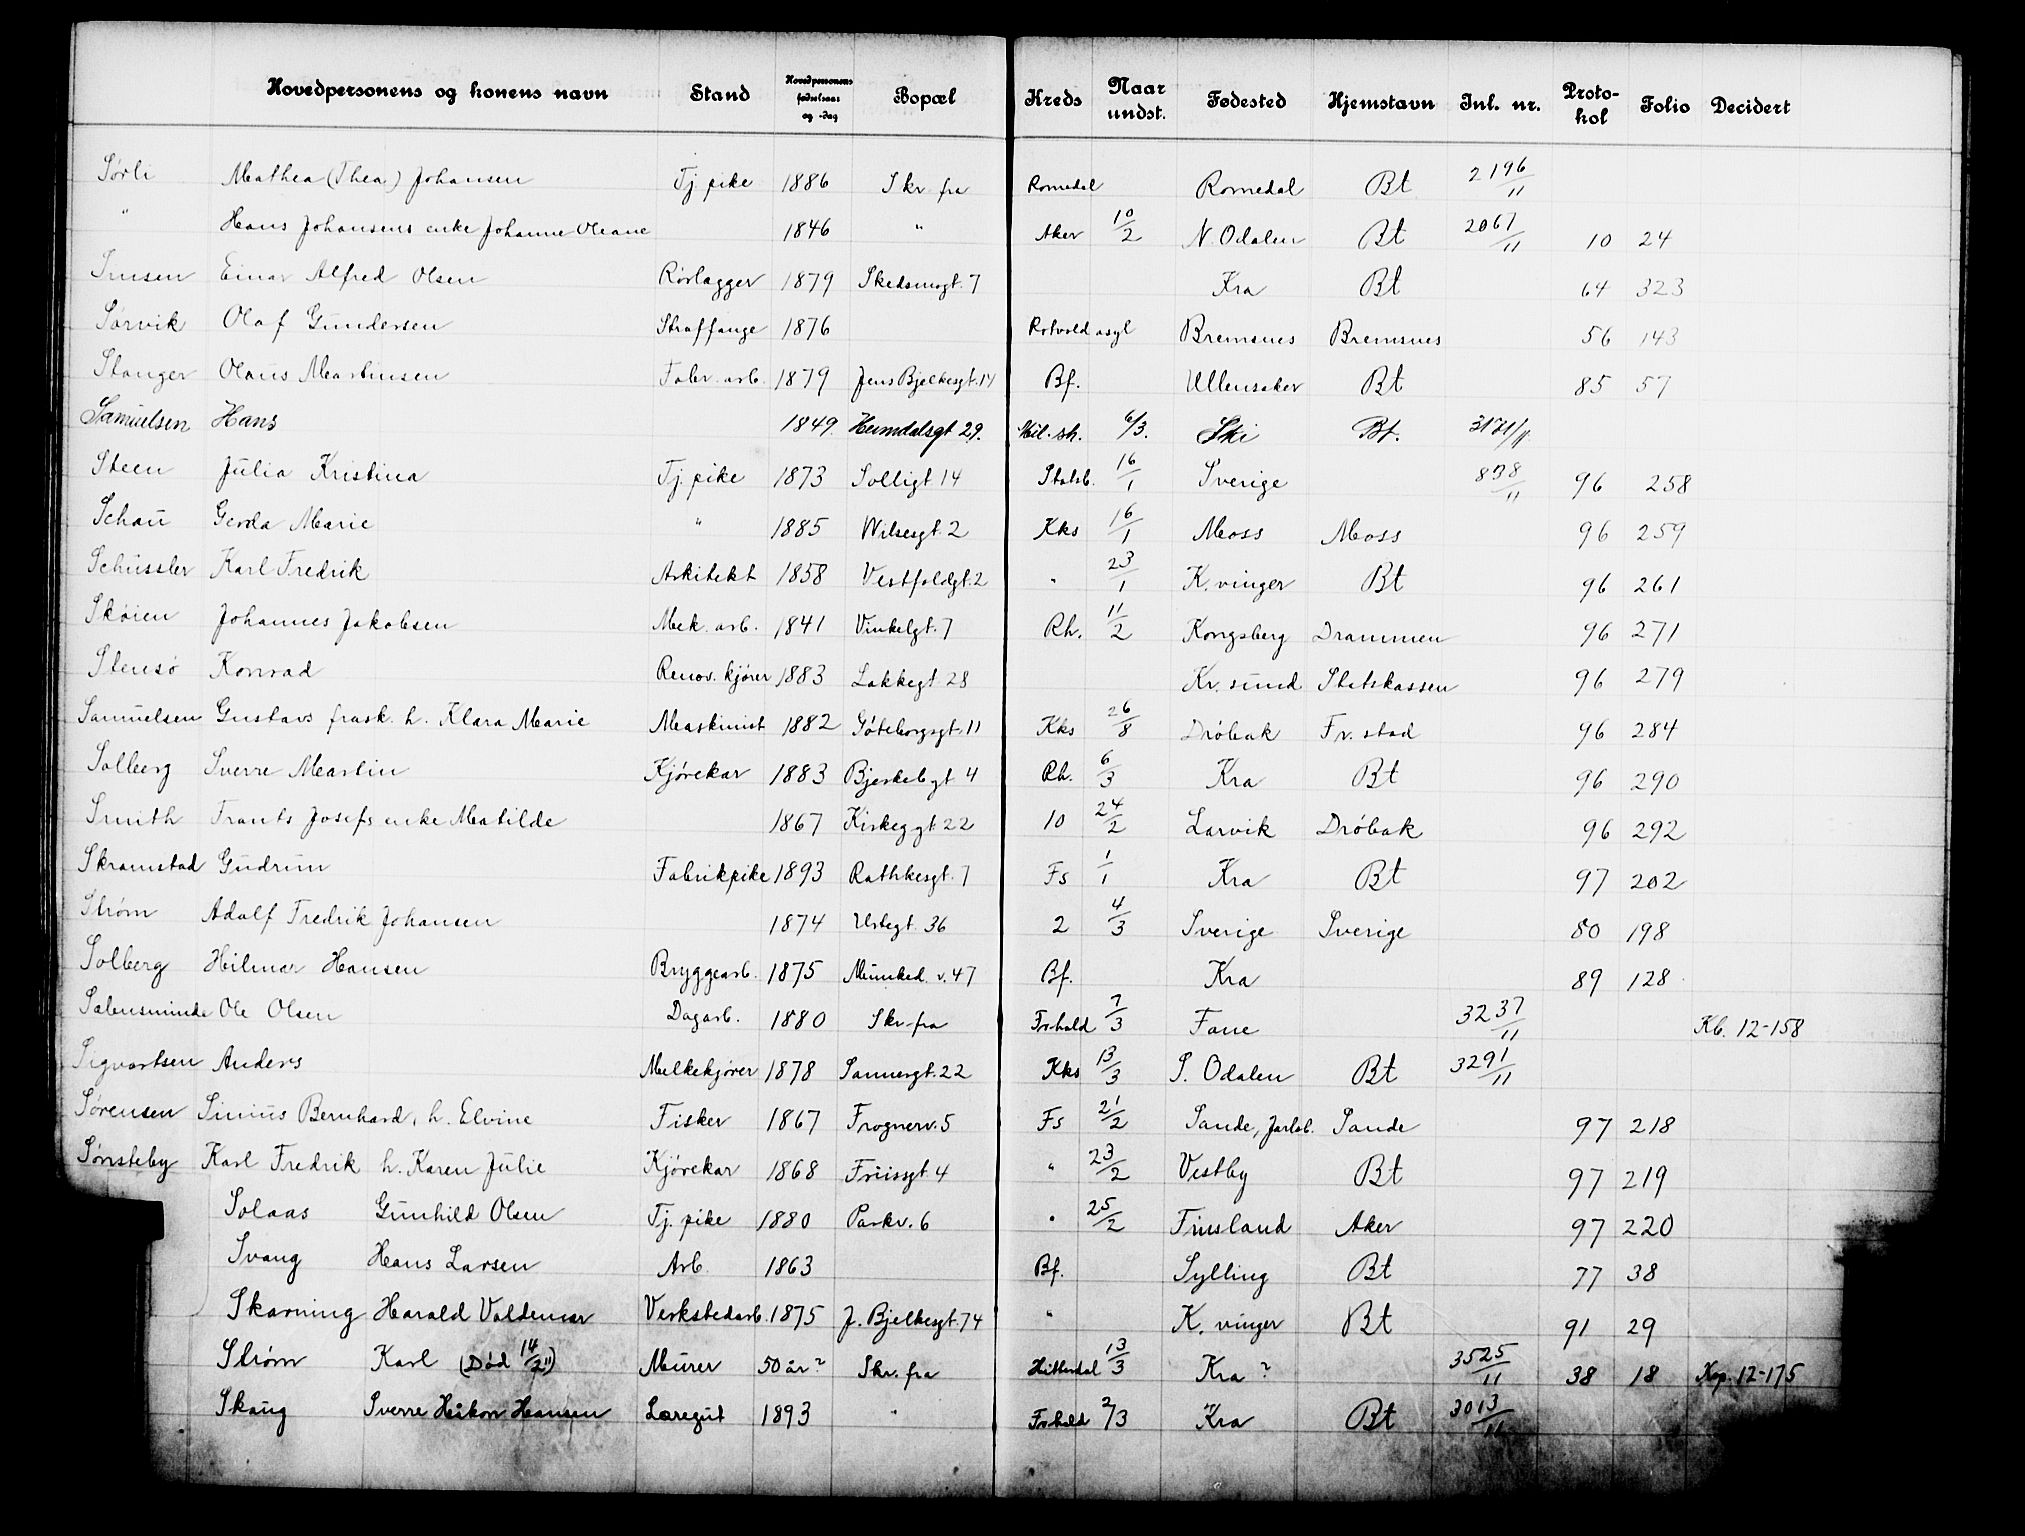 Hovedpersonens og konens navn Stand Hovedpersonens fødselsaar og -dag Bopæl Kreds Naar undst. Fødested Hjemstavn Inl. nr. Proto-kol Folio Decidert
Sørli Mathea (Thea) Johansen Tj. pike 1886 Skr. fra Romedal Romedal Bt 2196/11
" Hans Johansens enke Johanne Oleane 1846 " Aker 10/2 N. Odalen Bt 2067/11 10 24
Einar Alfred Olsen Rørlægger 1879 Skedsmogt. 7 Kra Bt 64 323
Sørvik Olaf Gundersen Straffange 1876 Rotvold asyl Bremsnes Bremsnes 56 143
Stanger Olaus Martinsen Fabr. arb. 1879 Jens Bjelkesgt. 14 Bf. Ullensaker Bt 85 57
Samuelsen Hans 1849. Heimdalsgt 29. Mil. sk. 6/3. Ski Bt. /11
Steen Julia Kristina Tj. pike 1873 Solligt 14 Stabsb. 16/1 Sverige 838/11 96 258
Schau Gerda Marie " 1885 Wilsesgt. 2 Kks 16/1 Moss Moss 96 259
Schüssler Karl Fredrik Arkitekt 1858 Vestfoldgt. 2 " 23/1 K. vinger Bt 96 261
Skøien Johannes Jakobsen Mek. arb. 1841 Vinkelgt. 7 Rh. 11/2 Kongsberg Drammen 96 271
Stensø Konrad Renov. kjører 1883 Lakkegt. 28 Kr. sund Statskassen 96 279
Samuelsen Gustavs frask. h. Klara Marie Maskinist 1882 Gøteborgsgt. 11 Kks 26/8 Drøbak Fr. stad 96 284
Solberg Sverre Martin Kjørekar 1883 Bjerkebygt 4 Rh. 6/3 Kra Bt 96 290
Smith Frants Josefs enke Matilde 1867 Kirkeggt 22 10 24/2 Larvik Drøbak 96 292
Skramstad Gudrun Fabrikpike 1893 Rathkesgt. 7 Fs 1/1 Kra Bt 97 202
Strøm Adolf Fredrik Johansen 1874 Urtegt. 36 2 4/3 Sverige Sverige 80 198
Solberg Hilmar Hansen Bryggearb. 1875 Munked. v. 47 Bf. Kra 89 128
Sælensminde Ole Olsen Dagarb. 1880 Skr. fra Fr.hald 7/3 Fane 3237/11 Kb. 12-158
Sigvartsen Anders Melkekjører 1878 Sannergt. 22 Kks 13/3 S. Odalen Bt 3291/11
Sørensen Sinius Bernhard, h. Elvine Fisker 1867 Frognerv. 5 Fs 21/2 Sande, Jarlsb. Sande 97 218
Sønsteby Karl Fredrik h. Karen Julie Kjørekar 1868 Friisgt. 4 " 23/2 Vestby Bt 97 219
Solaas Gunhild Olsen Tj. pike 1880 Parkv. 6 " 25/2 Finsland Aker 97 220
Svang Hans Larsen Arb. 1863 Bf. Sylling Bt 77 38
Skarning Harald Valdemar Verkstedarb. 1875 J. Bjelkesgt. 74 " K. vinger Bt 91 29
Strøm Karl (Død 14/2 11) Murer 50 år? Skr. fra Hitterdal 13/3 Kra ? 3525/11 38 18 Kop. 12-175
Skaug Sverre Håkon Hansen Læregut 1893 " Fr.hald 2/3 Kra Bt 3013/11